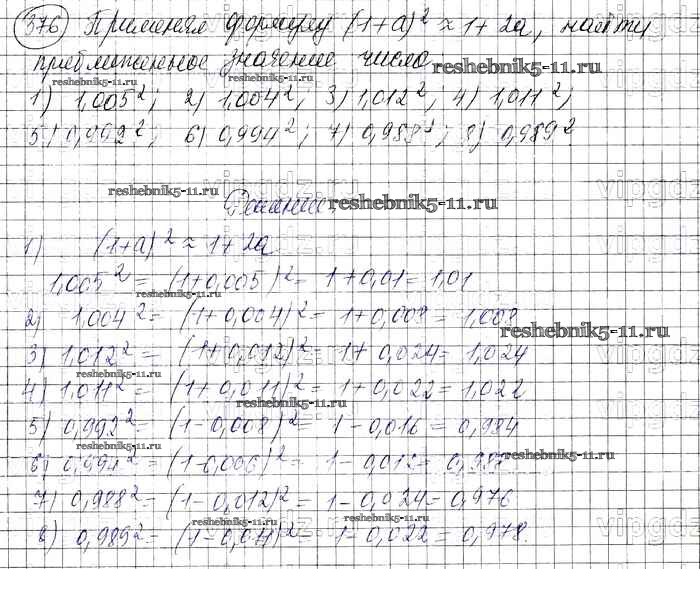 376 Применяя формулу (1+a)² ≈ 1+2a, найти
приближенное значение число
reshebnik5-11.ru
reshebnik5-11.ru
1) 1,005²; 2) 1,004²; 3) 1,012²; 4) 1,011²;
5) 0,992²; 6) 0,994²; 7) 0,988²; 8) 0,989²
vipgdz.ru
reshebnik5-11.ru
Решение.
reshebnik5-11.ru
1) (1+a)² ≈ 1+2a
1,005² = (1+0,005)² = 1+0,01 = 1,01
reshebnik5-11.ru
2) 1,004² = (1+0,004)² = 1+0,008 = 1,008
reshebnik5-11.ru
3) 1,012² = (1+0,012)² = 1+0,024 = 1,024
reshebnik5-11.ru
4) 1,011² = (1+0,011)² = 1+0,022 = 1,022
reshebnik5-11.ru
5) 0,992² = (1-0,008)² = 1-0,016 = 0,984
reshebnik5-11.ru
6) 0,994² = (1-0,006)² = 1-0,012 =
reshebnik5-11.ru
7) 0,988² = (1-0,012)² = 1-0,024 = 0,976
reshebnik5-11.ru
reshebnik5-11.ru
8) 0,989² = (1-0,011)² = 1-0,022 = 0,978.
vipgdz.ru